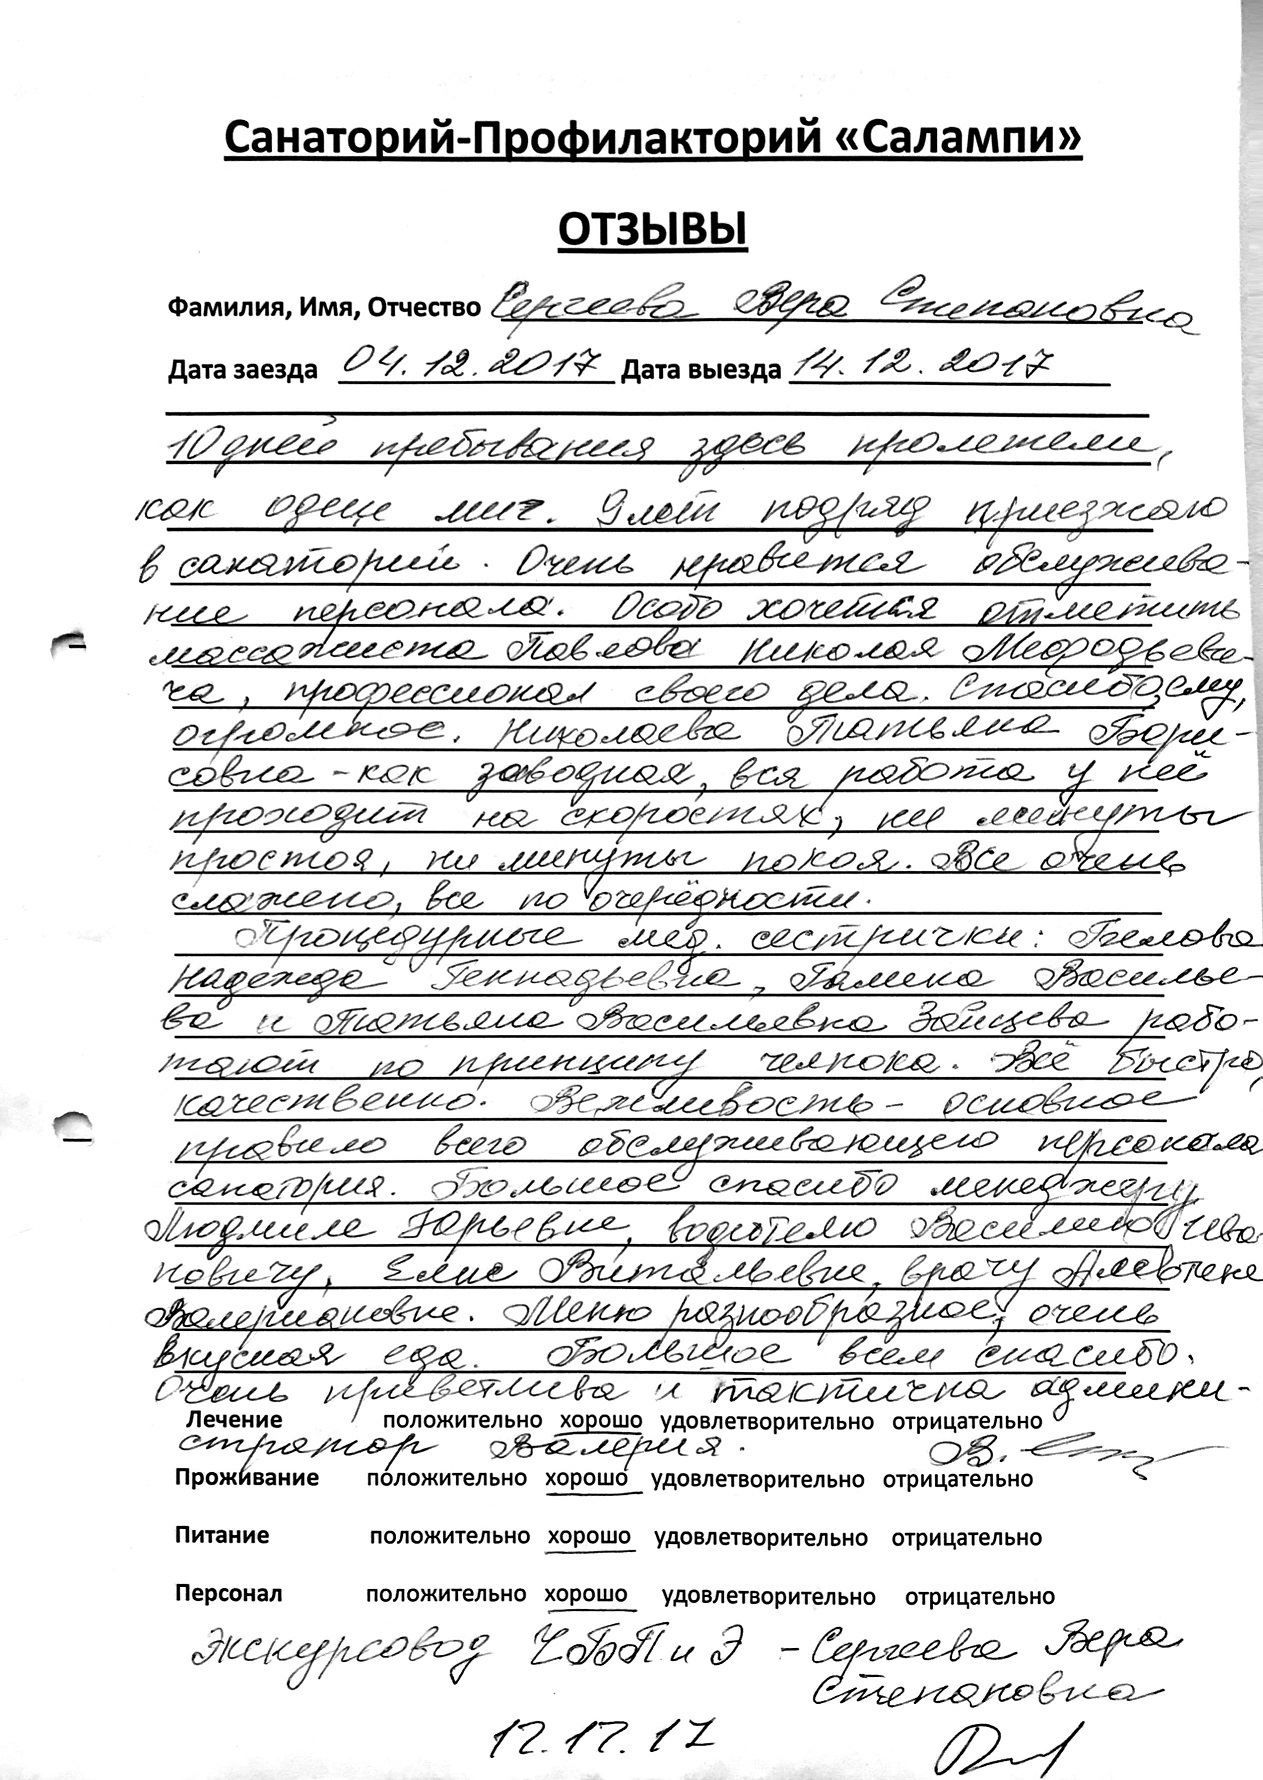 Санаторий-Профилакторий «Салампи»
ОТЗЫВЫ
Фамилия, Имя, Отчество Сергеева Вера Степановна
Дата заезда 04.12.2017 Дата выезда 14.12.2017
10 дней пребывания здесь пролетели,
как один миг. 9 лет подряд приезжаю
в санаторий. Очень нравится обслужива-
ние персонала. Особо хочется отметить
массажиста Павлова Николая Мефодьеви-
ча, профессионал своего дела. Спасибо ему,
огромное. Николаева Татьяна Бори-
совна - как заводная, вся работа у неё
проходит на скоростях, ни минуты
простоя, ни минуты покоя. Все очень
слажено, все по очерёдности.
Процедурные мед. сестрички: Белова
Надежда Геннадьевна, Галина Василье-
ва и Татьяна Васильевна Зайцева рабо-
тают по принципу челнока. Всё быстро,
качественно. Вежливость - основное
правило всего обслуживающего персонала
санатория. Большое спасибо менеджеру
Людмиле Юрьевне, водителю Василию Ива-
новичу, Елис Витальевне, врачу Алевтине
Валериановне. Меню разнообразное, очень
вкусная еда. Большое всем спасибо.
Очень приветлива и тактична админи-
Лечение положительно хорошо удовлетворительно отрицательно
стратор Валерия. В.
Проживание положительно хорошо удовлетворительно отрицательно
Питание положительно хорошо удовлетворительно отрицательно
Персонал положительно хорошо удовлетворительно отрицательно
Экскурсовод ЧБПиЭ - Сергеева Вера
Степановна
12.12.17